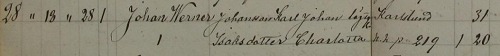 28 " 13 " 28 1 Johan Werner Johansson Karl Johan Karlslund 31
1 Isaksdotter Charlotta p 219 1 20